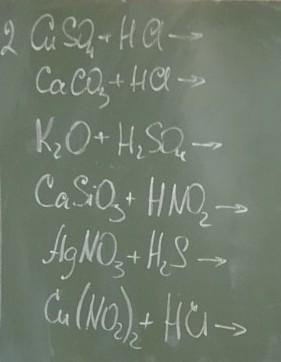 2 CuSO₄ + HCl →
CaCO₃ + HCl →
K₂O + H₂SO₄ →
CaSiO₃ + HNO₂ →
AgNO₃ + H₂S →
Cu(NO₂)₂ + HCl →